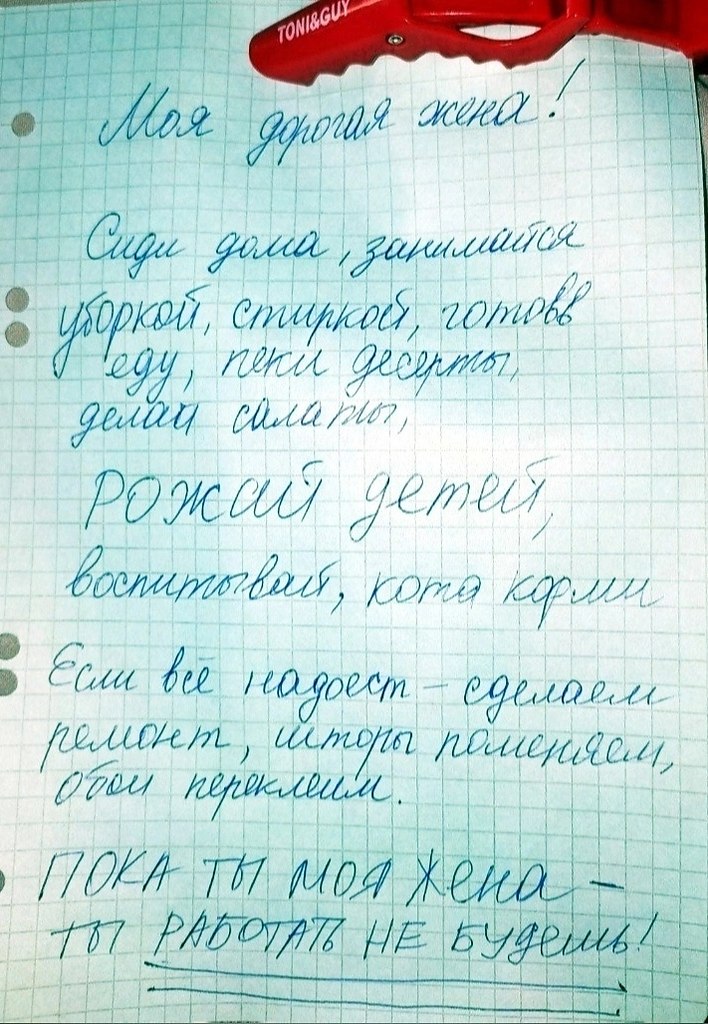 TONI&GUY
Моя дорогая жена!
Сиди дома, занимайся
уборкой, стиркой, готовв
еду, пеки десерты,
делай салаты,
РОЖАЙ детей,
воспитывай, кота корми
Если всё надоест – сделаем
ремонт, шторы поменяем,
обои переклеим.
ПОКА ТЫ МОЯ Жена –
ТЫ РАБОТАТЬ НЕ БУДешь!